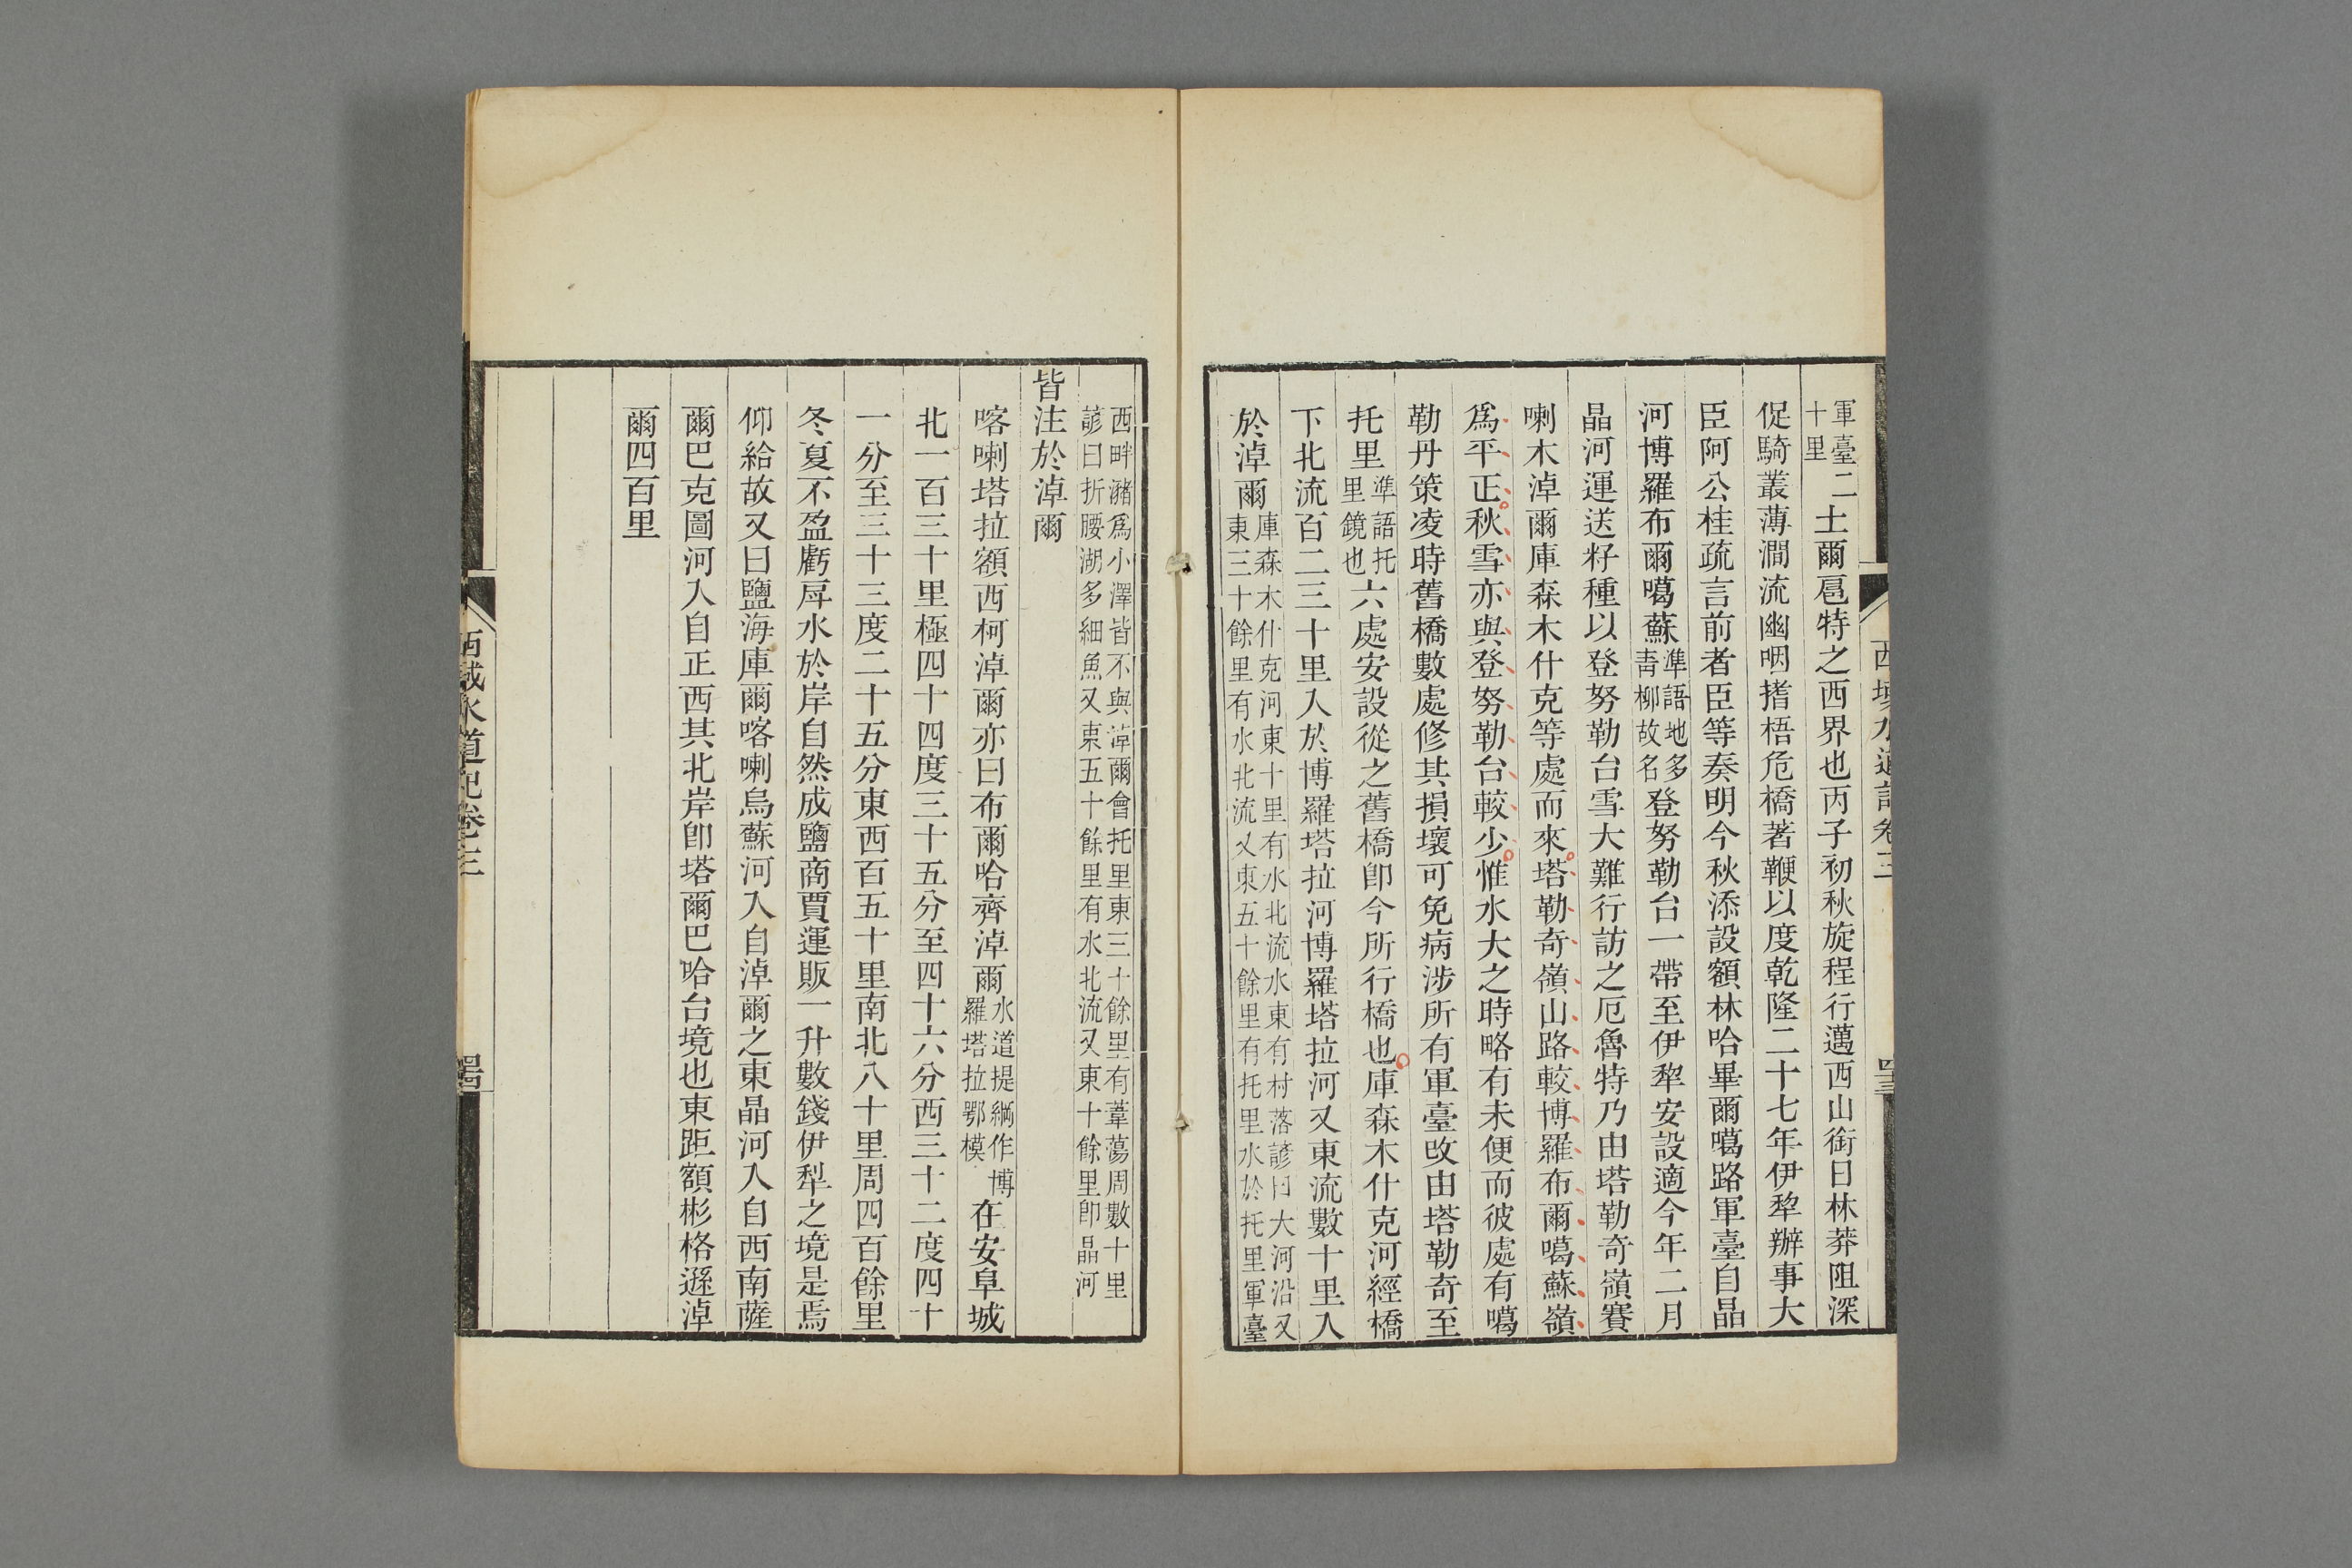 軍臺
十里
二土爾扈特之西界也丙子初秋旋程行邁西山銜日林莽阻深
促騎叢薄澗流幽咽搘梧危橋著鞭以度乾隆二十七年伊犂辦事大
臣阿公桂疏言前者臣等奏明今秋添設額林哈畢爾噶路軍臺自晶
河博羅布爾噶蘇
準語地多
青柳故名
登努勒台一帶至伊犂安設適今年二月
晶河運送籽種以登努勒台雪大難行訪之厄魯特乃由塔勒奇嶺賽
喇木淖爾庫森木什克等處而來塔勒奇嶺山路較博羅布爾噶蘇嶺
爲平正秋雪亦與登努勒台較少惟水大之時略有未便而彼處有噶
勒丹策凌時舊橋數處修其損壞可免病涉所有軍臺改由塔勒奇至
托里
準語托
里鏡也
六處安設從之舊橋卽今所行橋也庫森木什克河經橋
下北流百二三十里入於博羅塔拉河博羅塔拉河又東流數十里入
於淖爾
庫森木什克河東十里有水北流水東有村落諺曰大河沿又
東三十餘里有水北流又東五十餘里有托里水於托里軍臺
西畔瀦爲小澤皆不與淖爾會托里東三十餘里有葦蕩周數十里
諺曰折腰湖多細魚又東五十餘里有水北流又東十餘里卽晶河
皆注於淖爾
喀喇塔拉額西柯淖爾亦曰布爾哈齊淖爾
水道提綱作博
羅塔拉鄂模
在安阜城
北一百三十里極四十四度三十五分至四十六分西三十二度四十
一分至三十三度二十五分東西百五十里南北八十里周四百餘里
冬夏不盈虧戽水於岸自然成鹽商賈運販一升數錢伊犂之境是焉
仰給故又曰鹽海庫爾喀喇烏蘇河入自淖爾之東晶河入自西南薩
爾巴克圖河入自正西其北岸卽塔爾巴哈台境也東距額彬格遜淖
爾四百里
西域水道記卷三